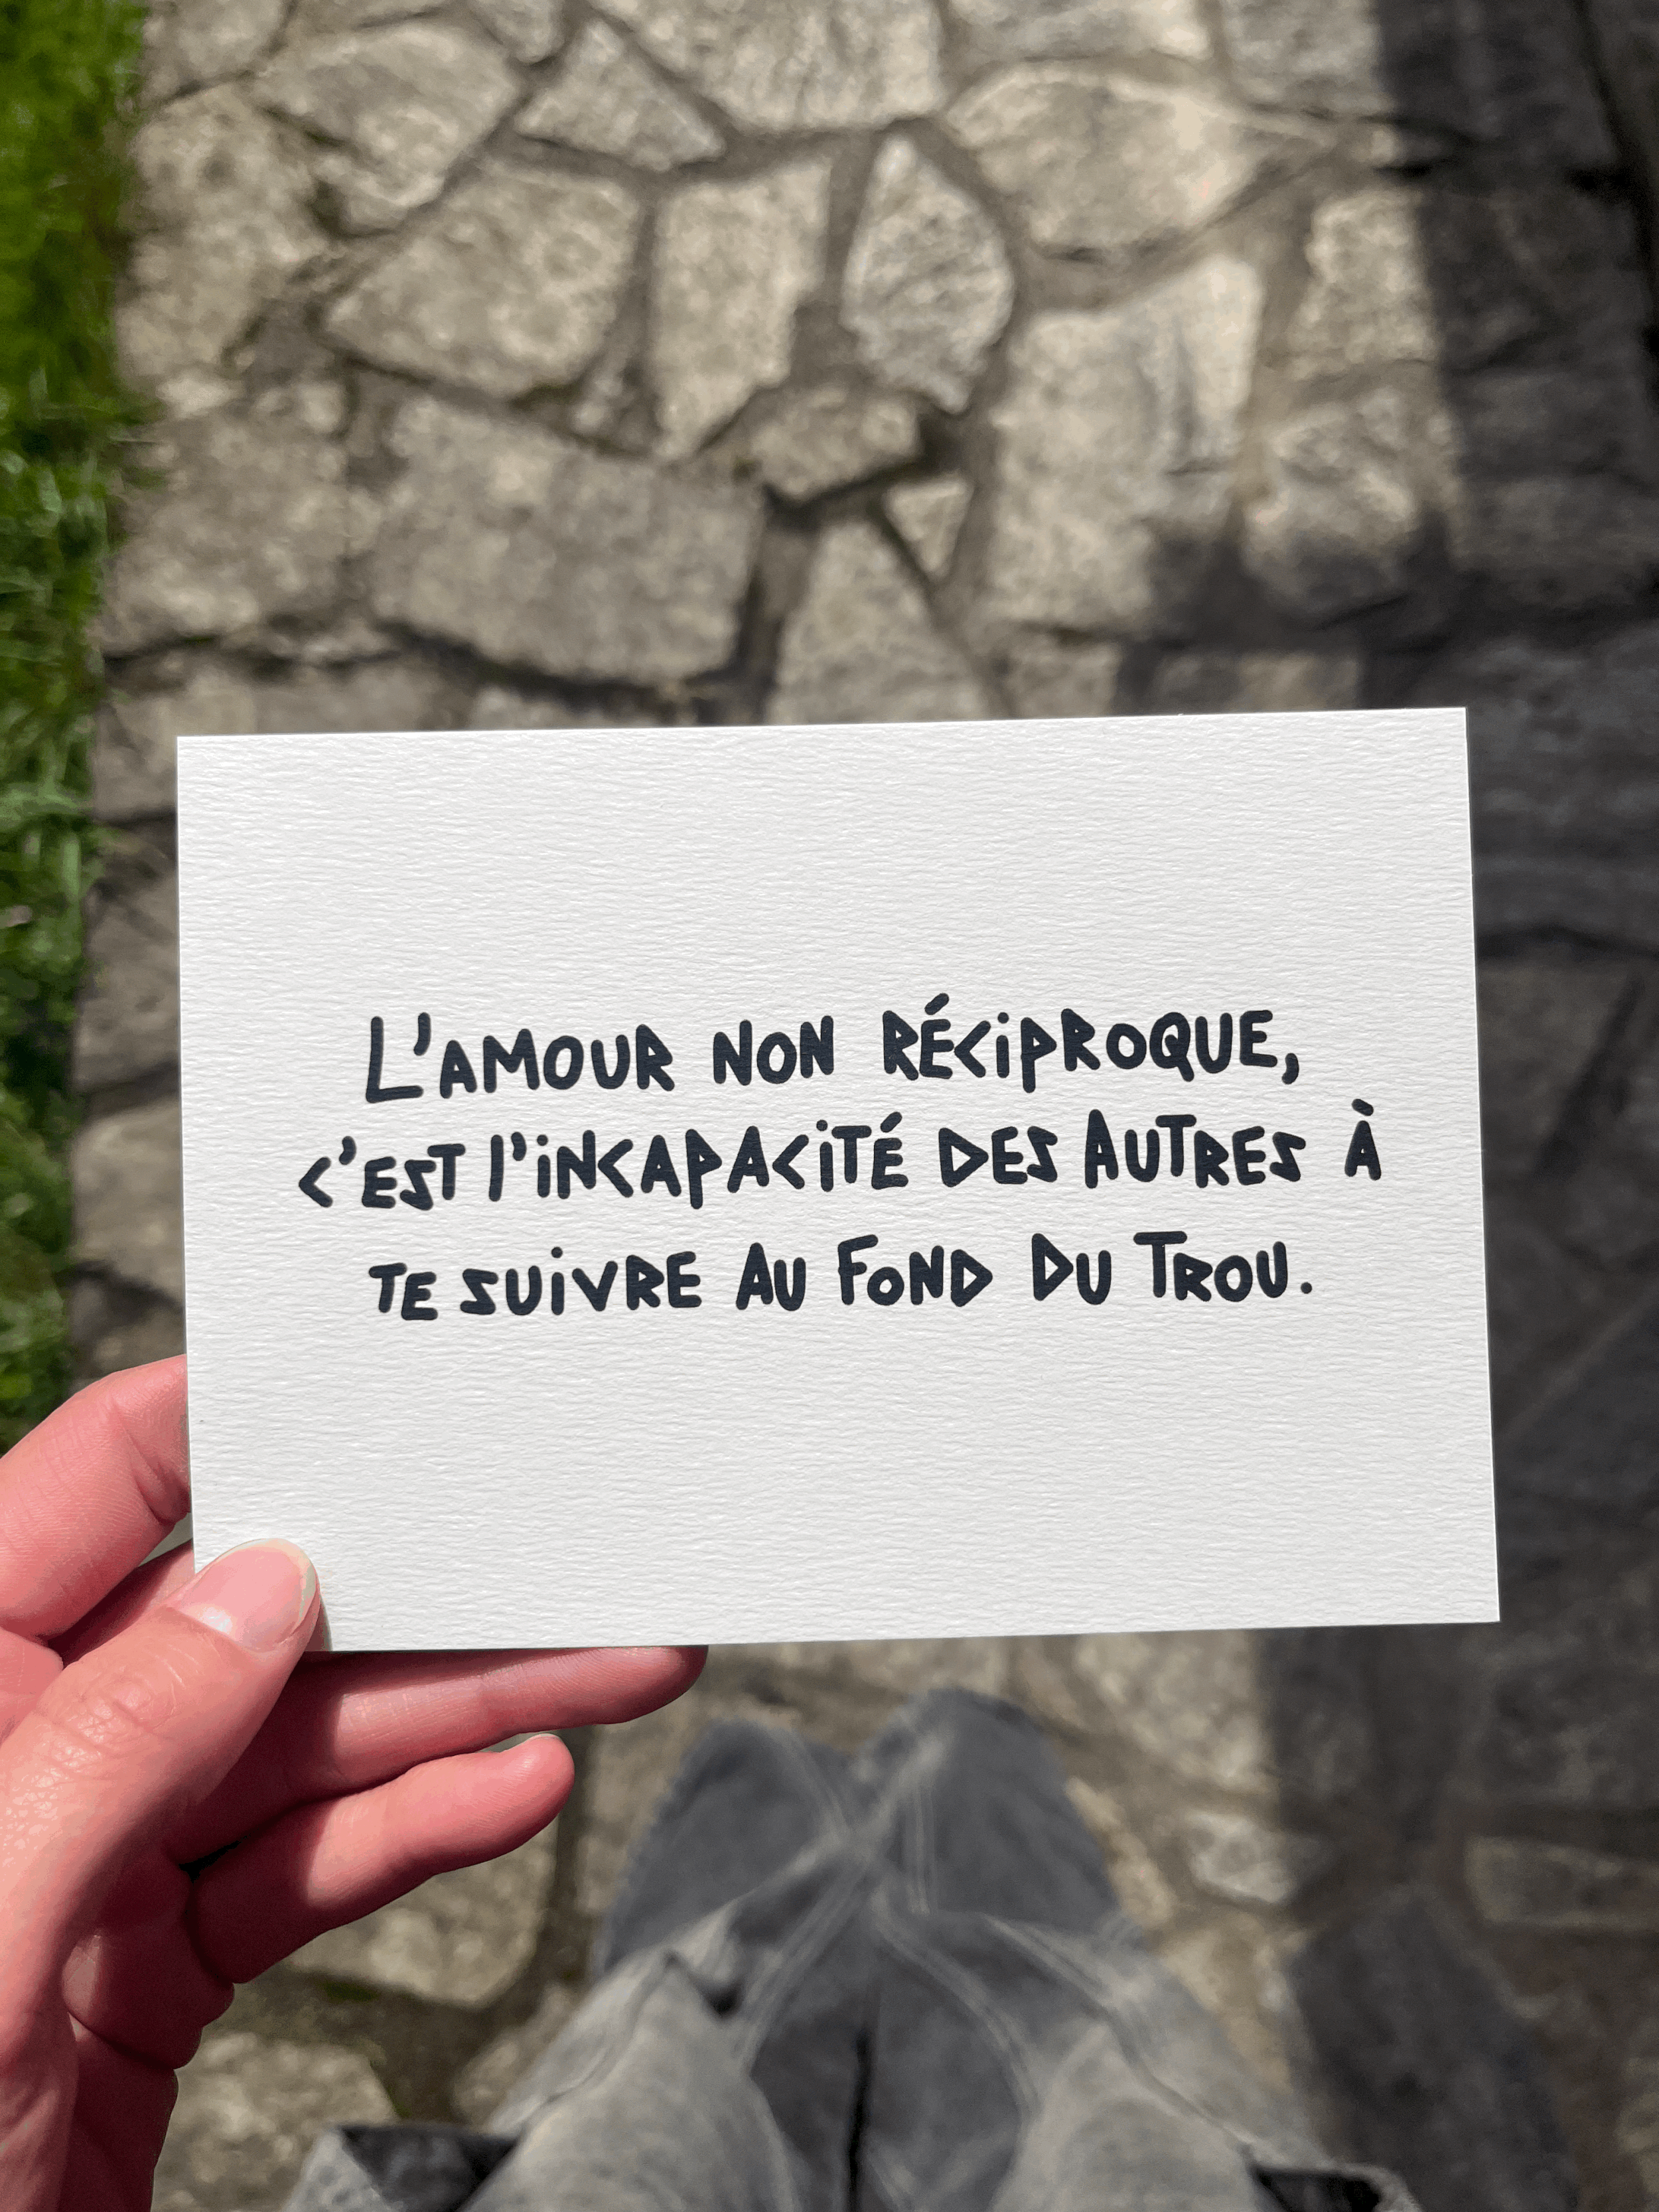 L'AMOUR NON RÉCIPROQUE,
C'EST l'INCAPACITÉ DES AUTRES À
TE SUIVRE AU FOND DU TROU.